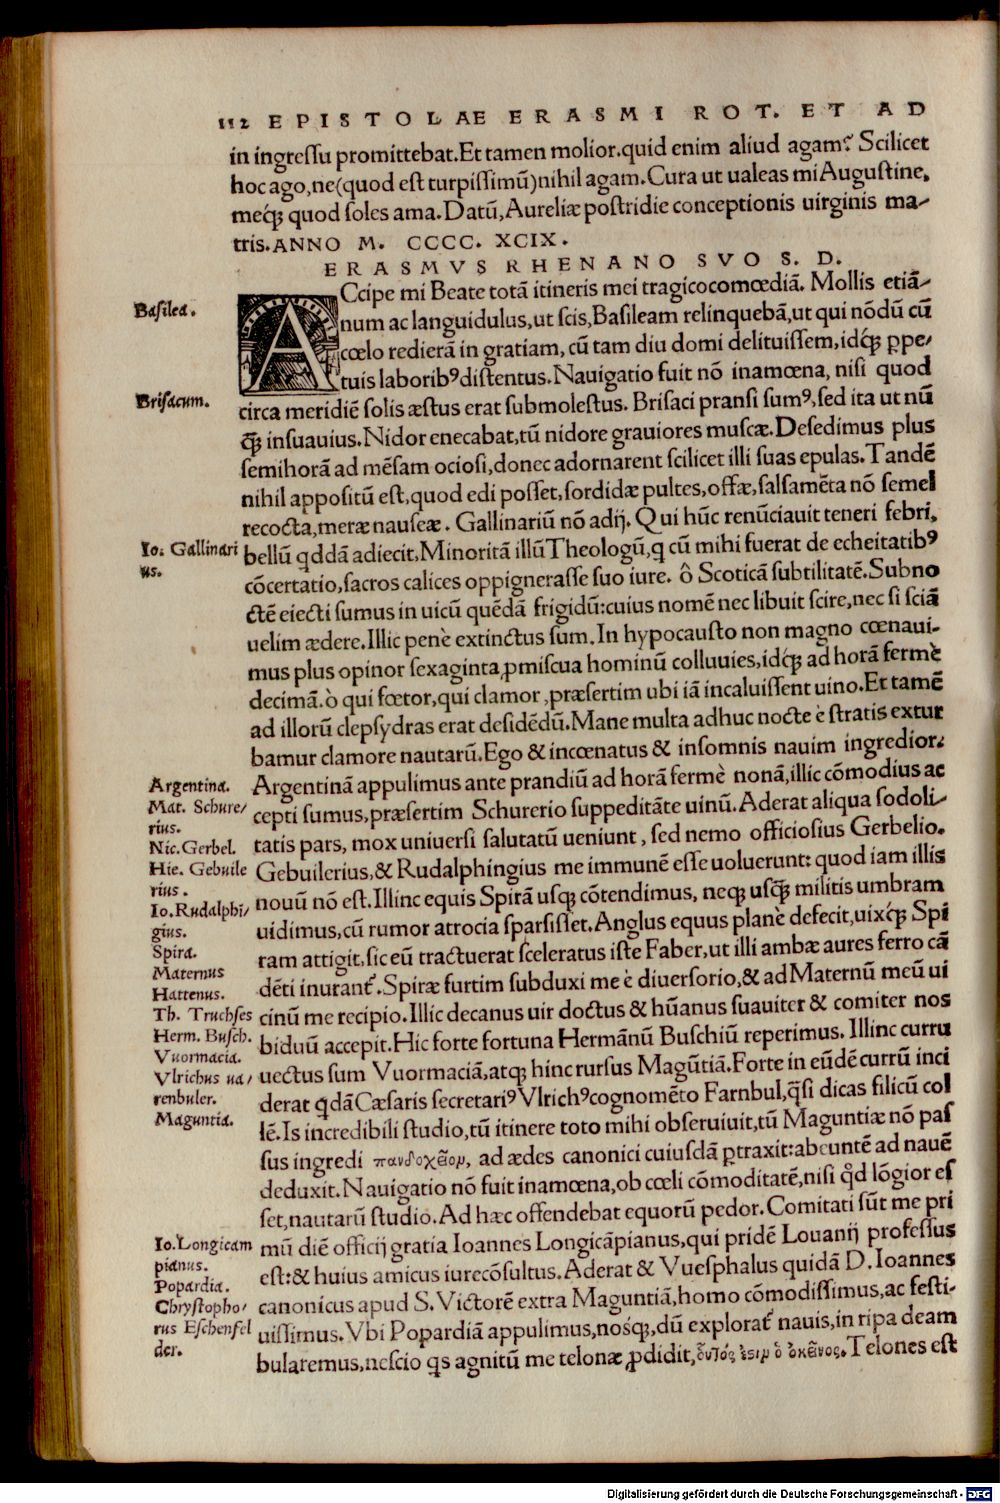 112 EPISTOLAE ERASMI ROT. ET AD
in ingreſſu promittebat. Et tamen molior. quid enim aliud agam? Scilicet
hoc ago, ne (quod eſt turpiſſimū) nihil agam. Cura ut ualeas mi Auguſtine,
meq́ꝫ quod ſoles ama. Datū, Aureliæ poſtridie conceptionis uirginis ma-
tris. ANNO M. CCCC. XCIX.
ERASMVS RHENANO SVO S. D.
Baſilea.
ACcipe mi Beate totā itineris mei tragicocomœdiā. Mollis etiā-
num ac languidulus, ut ſcis, Baſileam relinquebā, ut qui nōdū cū
cœlo redierā in gratiam, cū tam diu domi delituiſſem, idq́ꝫ ꝑpe-
tuis laboribꝰ diſtentus. Nauigatio fuit nō inamœna, niſi quod
Briſacum.
circa meridiē ſolis æſtus erat ſubmoleſtus. Briſaci pranſi ſumꝰ, ſed ita ut nū
q̄ꝫ inſuauius. Nidor enecabat, tū nidore grauiores muſcæ. Deſedimus plus
ſemihorā ad mēſam ocioſi, donec adornarent ſcilicet illi ſuas epulas. Tandē
nihil appoſitū eſt, quod edi poſſet, ſordidæ pultes, offæ, ſalſamēta nō ſemel
recocta, meræ nauſeæ. Gallinariū nō adij. Qui hūc renūciauit teneri febri,
Io. Gallinari
us.
bellū qddā adiecit, Minoritā illū Theologū, q cū mihi fuerat de echeitatibꝰ
cōcertatio, ſacros calices oppigneraſſe ſuo iure. ô Scoticā ſubtilitatē. Subno
ctē eiecti ſumus in uicū quēdā frigidū: cuius nomē nec libuit ſcire, nec ſi ſciā
uelim ædere. Illic penè extinctus ſum. In hypocauſto non magno cœnaui-
mus plus opinor ſexaginta, ꝓmiſcua hominū colluuies, idq́ꝫ ad horā fermè
decimā. ò qui fœtor, qui clamor, præſertim ubi iā incaluiſſent uino. Et tamē
ad illorū clepſydras erat deſidēdū. Mane multa adhuc nocte è ſtratis extur
bamur clamore nautarū. Ego & incœnatus & inſomnis nauim ingredior:
Argentina.
Mat. Schure-
rius.
Nic. Gerbel.
Hie. Gebuile
rius.
Io. Rudalphi-
gius.
Spira.
Maternus
Hattenus.
Th. Truchſes
Herm. Buſch.
Vuormacia.
Vlrichus ua-
renbuler.
Maguntia.
Argentinā appulimus ante prandiū ad horā fermè nonā, illic cōmodius ac
cepti ſumus, præſertim Schurerio ſuppeditāte uinū. Aderat aliqua ſodoli-
tatis pars, mox uniuerſi ſalutatū ueniunt, ſed nemo officioſius Gerbelio.
Gebuilerius, & Rudalphingius me immunē eſſe uoluerunt: quod iam illis
nouū nō eſt. Illinc equis Spirā uſqꝫ cōtendimus, neqꝫ uſq̄ꝫ militis umbram
uidimus, cū rumor atrocia ſparſiſſet. Anglus equus planè defecit, uixq́ꝫ Spi
ram attigit, ſic eū tractuerat ſceleratus iſte Faber, ut illi ambæ aures ferro cā
dēti inurant᷑. Spiræ furtim ſubduxi me è diuerſorio, & ad Maternū meū ui
cinū me recipio. Illic decanus uir doctus & hūanus ſuauiter & comiter nos
biduū accepit. Hic forte fortuna Hermānū Buſchiū reperimus. Illinc curru
uectus ſum Vuormaciā, atqꝫ hinc rurſus Magūtiā. Forte in eūdē currū inci
derat qdā Cæſaris ſecretariꝰ Vlrichꝰ cognomēto Farnbul, q̄ſi dicas filicū col
lē. Is incredibili ſtudio, tū itinere toto mihi obſeruiuit, tū Maguntiæ nō paſ
ſus ingredi πανδοχεῖον, ad ædes canonici cuiuſdā ꝑtraxit: abeuntē ad nauē
deduxit. Nauigatio nō fuit inamœna, ob cœli cōmoditatē, niſi qd lōgior eſ
ſet, nautarū ſtudio. Ad hæc offendebat equorū pedor. Comitati ſūt me pri
Io. Longicam
pianus.
Popardia.
Chryſtopho-
rus Eſchenfel
der.
mū diē officij gratia Ioannes Longicāpianus, qui pridē Louanij profeſſus
eſt: & huius amicus iurecōſultus. Aderat & Vueſphalus quidā D. Ioannes
canonicus apud S. Victorē extra Maguntiā, homo cōmodiſſimus, ac feſti-
uiſſimus. Vbi Popardiā appulimus, noſq́ꝫ, dū explorat᷑ nauis, in ripa deam
bularemus, neſcio qs agnitū me telonæ ꝓdidit, οὗτός ἐσιν ὁ ἐκεῖνος. Telones eſt
Digitalisierung gefördert durch die Deutsche Forschungsgemeinschaft - DFG